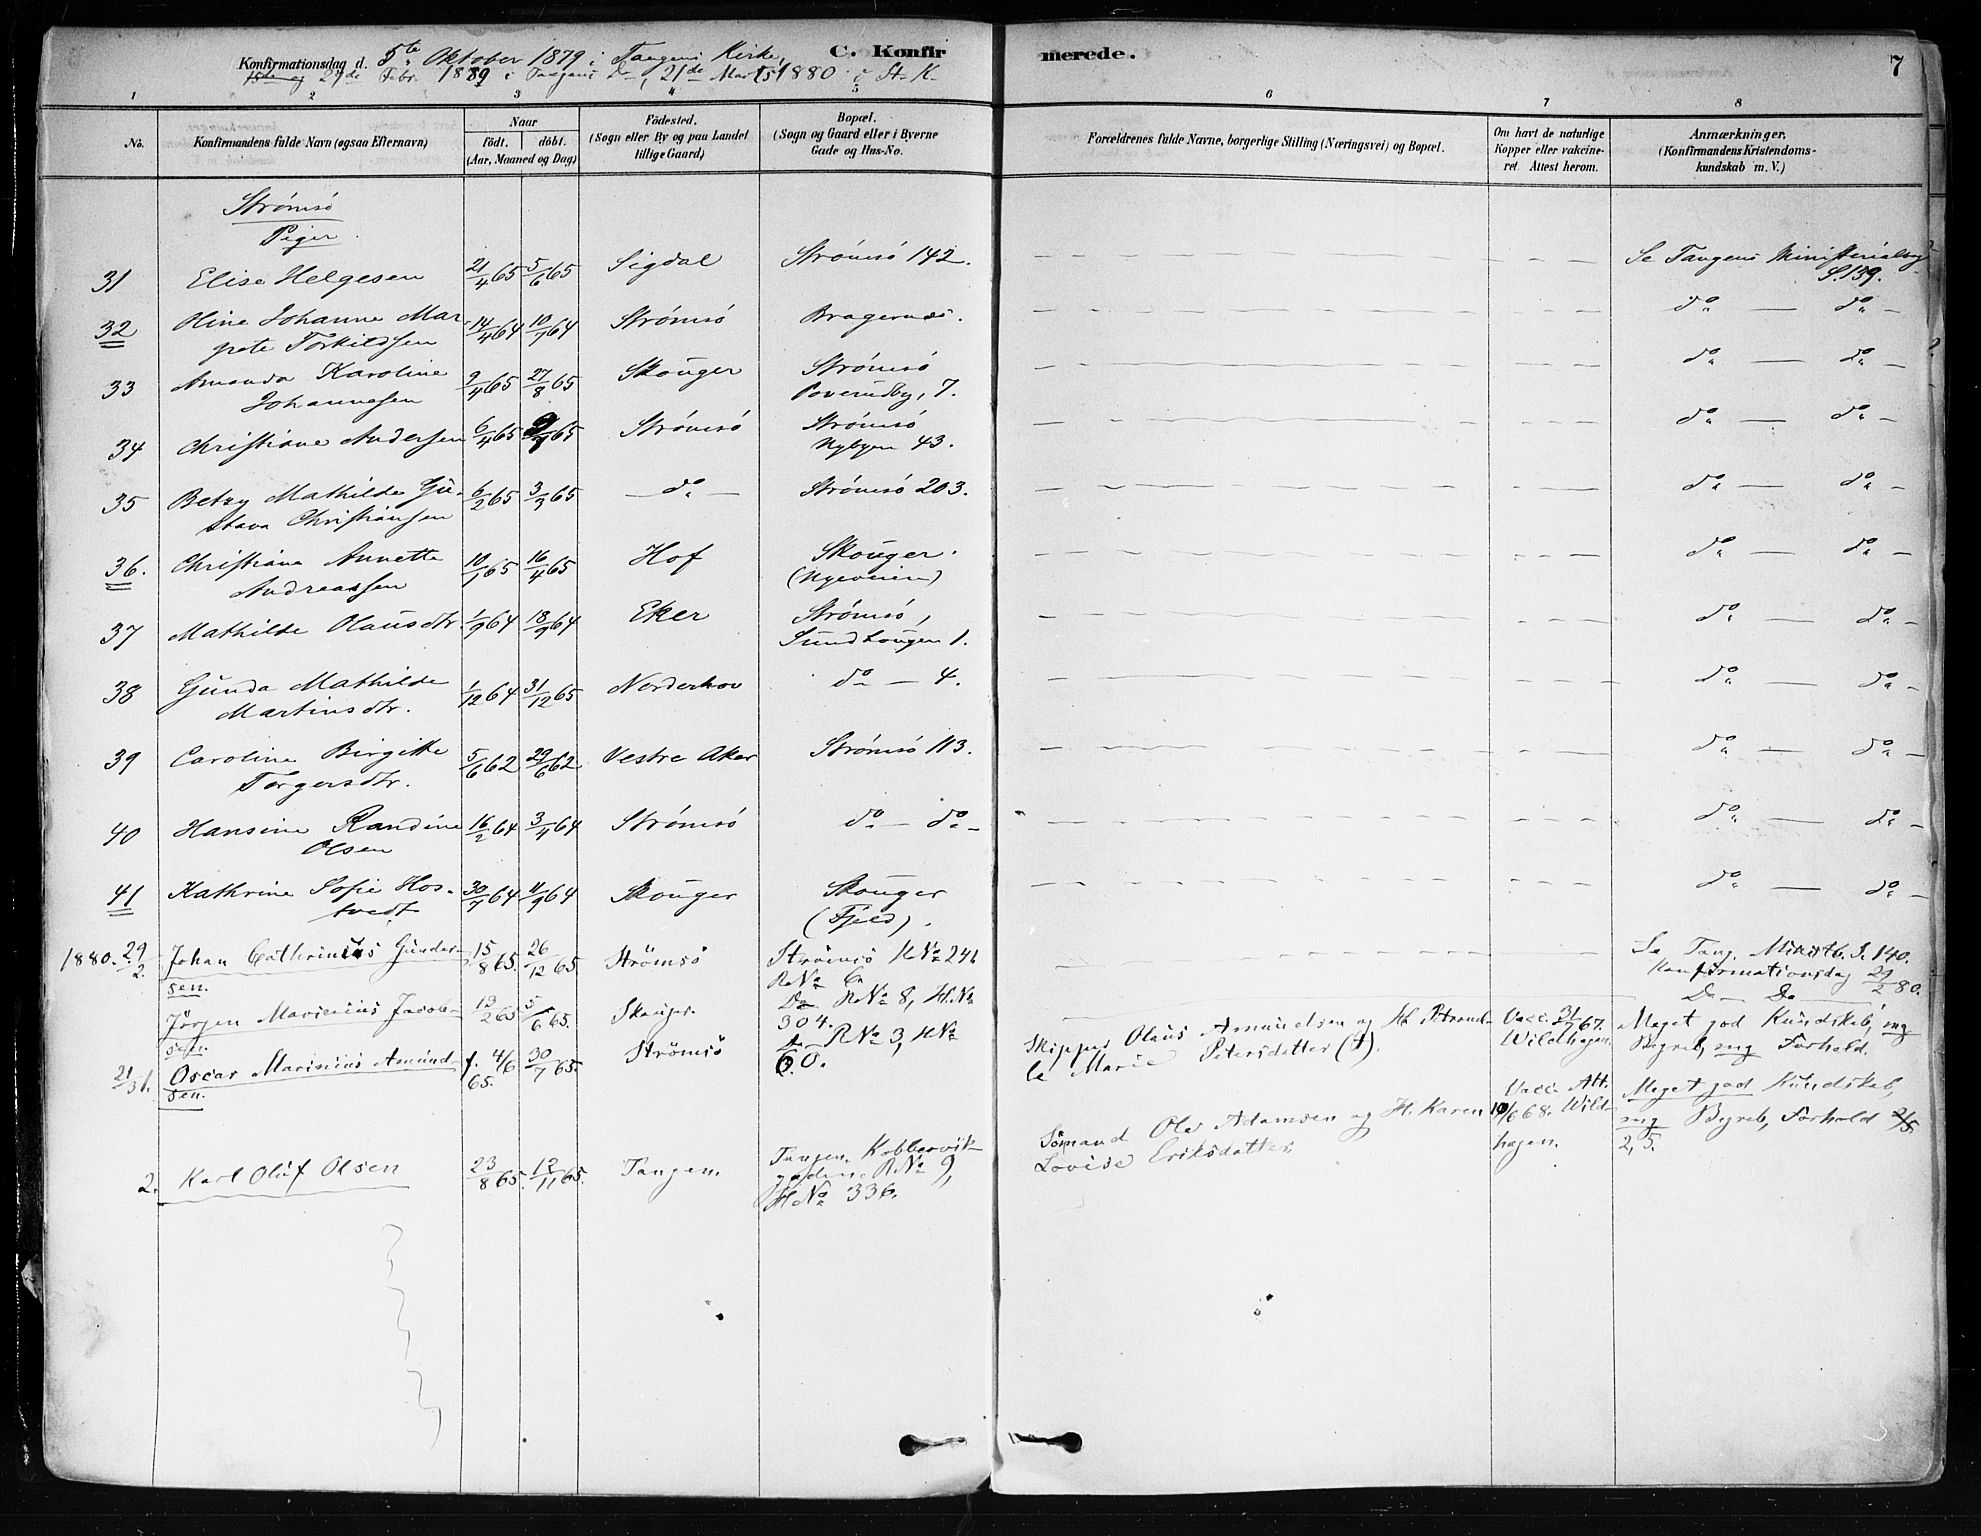 C. Konfirmerede.
7
Konfirmationsdag d. 5te Oktober 1879 i Tangens Kirke,
29de Febr. 1880 i Tangens Do, 21de Marts 1880 i St. K
1 2 3 4 5 6 7 8
No.
Konfirmandens fulde Navn (ogsaa Efternavn)
Naar
födt. döbt.
(Aar, Maaned og Dag)
Födested.
(Sogn eller By og paa Landet
tillige Gaard)
Bopæl.
(Sogn og Gaard eller i Byerne
Gade og Hus-No.
Forældrenes fulde Navne, borgerlige Stilling (Næringsvei) og Bopæl.
Om havt de naturlige
Kopper eller vakcine-
ret. Attest herom.
Anmærkninger.
(Konfirmandens Kristendoms-
kundskab m. V.)
Strömsö
Piger
31 Elise Helgesen 21/4 65 5/6 65 Sigdal Strömsö 142. Se Tangens Ministerialbog
S. 139.
32 Oline Johanne Mar- 14/4 64 10/7 64 Strömsö Bragernæs. do — do —
grete Torkildsen
33 Amanda Karoline 9/4 65 27/8 65 Skouger Strömsö do — do —
Johannesen Poverudby, 7.
34 Christiane Andersen 6/4 65 65 Strömsö Strömsö do — do —
Nybyen 43.
35 Betzy Mathilde Gu- 6/2 65 3/3 65 — do — Strömsö 203. do — do —
stava Christiansen
36. Christiane Annette 10/1 65 16/4 65 Hof Skouger. do — do —
Andreassen (Nyeveien)
37 Mathilde Olausdtr. 1/9 64 18/9 64 Eker Strömsö, do — do —
Sundhougen 1.
38 Gunda Mathilde 1/12 64 31/12 65 Norderhov do — 4. do — do —
Martinsdtr.
39 Caroline Birgitte 5/6 62 29/6 62 Vestre Aker Strömsö 113. do — do —
Torgersdtr.
40 Hansine Randine 16/2 64 3/4 64 Strömsö do — do — do — do —
Olsen
41 Kathrine Sofie Hos- 30/7 64 11/9 64 Skouger Skouger do — do —
tvedt (Fjeld).
1880. 29/2. Johan Cathrinius Gunder- 15/8 65. 26/12 65. Strömsö Strömsö H No 241 Se Tang. Ministb. S. 140.
sen. R No 6 Konfirmationsdag 29/2 80.
Jörgen Marienius Jacob- 13/2 65 5/6 65. Skouger. Do R No 8, H No Do — Do —
sen. 304.
21/3 1. Oscar Marinius Amund- f. 4/6 30/7 65. Strömsö Do R No 3, H No Skipper Olaus Amundsen og H. Petronel- Vacc. 21/7 67. Meget god Kundskab, mg
sen. 65. 60. le Marie Petersdatter (†). Wildhagen. Begreb, mg Forhold.
2. Karl Oluf Olsen 23/8 65. 12/11 65. Tangen. Tangen. Kobbervik- Sömand Ole Adamsen og H. Karen Vacc. Att. Meget god Kundskab,
gaden R No 9, Lovise Eriksdatter 10/6 68. Wild- mg Begreb, Forhold
H No 336. hagen. 2,5.